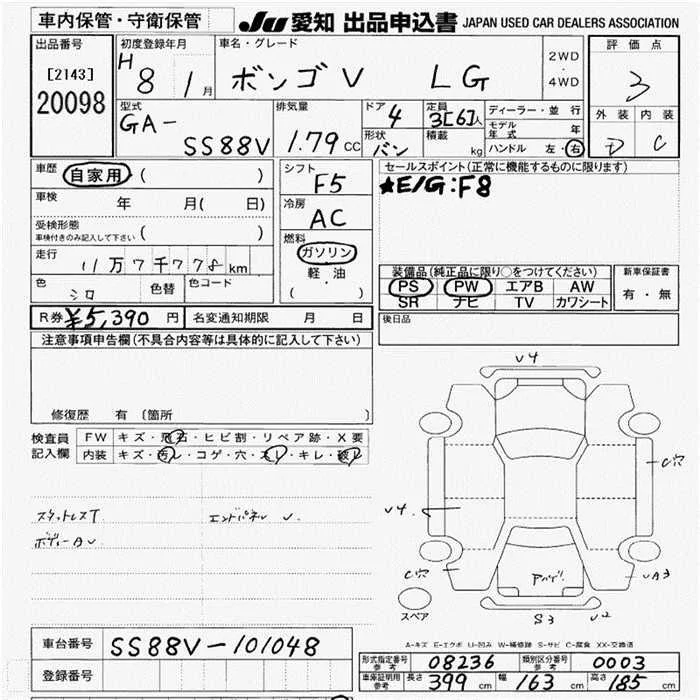 車内保管・守衛保管
JU 愛知 出品申込書 JAPAN USED CAR DEALERS ASSOCIATION
出品番号
[2143]
20098
初度登録年月
H 8 1月
車名・グレード
ボンゴV LG
2WD
・
4WD
評価点
3
外装 内装
D C
型式
GA-
SS88V
排気量
1.79 CC
ドア 4
形状 バン
定員 3[6]人
積載 kg
ディーラー・並行
モデル年式 年
ハンドル 左・右
車歴 自家用 ( )
車検 年 月( 日)
受検形態
車検付きのみ記入して下さい ( )
走行
11万7千778km
色 シロ 色替 色コード
シフト
F5
冷房
AC
燃料
ガソリン
軽・油
( )
セールスポイント(正常に機能するものに限ります)
★E/G:F8
装備品(純正品に限り〇をつけてください)
PS PW エアB AW
SR ナビ TV カワシート
新車保証書
有・無
R券 ¥5,390 円 名変通知期限 月 日
後日品
注意事項申告欄(不具合内容等は具体的に記入して下さい)
修復歴 有 〔箇所 〕
検査員
記入欄
FW キズ・飛石・ヒビ割・リペア跡・X要
内装 キズ・汚レ・コゲ・穴・スレ・キレ・破レ
スタットレスT エンドパネル U
ボディーA U
U4
C穴
U4
C穴
Aハゲ
UA3
スペア
S3 U2
A-キズ E-エクボ U-凹み W-補修跡 S-サビ C-腐食 XX-交換済
車台番号 SS88V-101048
登録番号
形式指定番号 参考 08236 類別区分番号 参考 0003
車庫証明用 参考 長さ 399 cm 幅 163 cm 高さ 185 cm